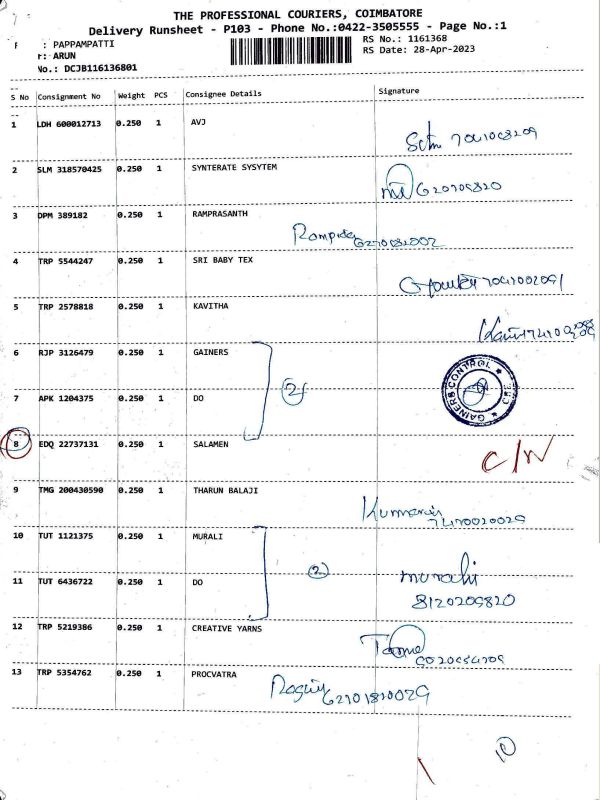 THE PROFESSIONAL COURIERS, COIMBATORE
Delivery Runsheet - P103 - Phone No.:0422-3505555 - Page No.:1
: PAPPAMPATTI
RS No.: 1161368
r: ARUN
RS Date: 28-Apr-2023
No.: DCJB116136801
S No Consignment No Weight PCS Consignee Details Signature
1 LDH 600012713 0.250 1 AVJ
2 SLM 318570425 0.250 1 SYNTERATE SYSYTEM
3 DPM 389182 0.250 1 RAMPRASANTH
4 TRP 5544247 0.250 1 SRI BABY TEX
5 TRP 2578818 0.250 1 KAVITHA
6 RJP 3126479 0.250 1 GAINERS
GAINERS CONTROL
7 APK 1204375 0.250 1 DO 2
8 EDQ 22737131 0.250 1 SALAMEN
C/N
9 TMG 200430590 0.250 1 THARUN BALAJI
10 TUT 1121375 0.250 1 MURALI
11 TUT 6436722 0.250 1 DO 2
8120209820
12 TRP 5219386 0.250 1 CREATIVE YARNS
13 TRP 5354762 0.250 1 PROCVATRA